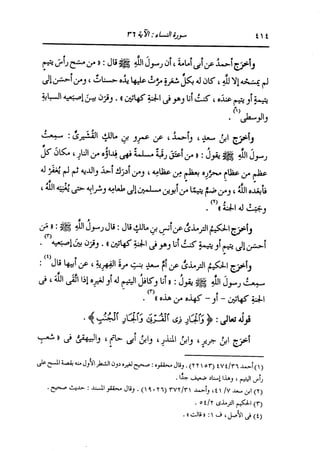 ٤١٤
سورة النساء : الآية ٣٦
وأخرج أحمدُ عن أبى أمامةَ ، أن رسول اللهِ ﷺ قال : « من مسَح رأسَ يتيمٍ
لم يمسحْه إلا للهِ ، كان له بكلِّ شعرةٍ مرَّت عليها يدُه حسناتٌ ، ومن أحسَن إلى
يتيمةٍ أو يتيمٍ عندَه ، كنتُ أنا وهو فى الجنةِ كهاتين » . وقرَن بينَ إصبعيه السبابةِ
والوسطى(١) .
وأخرج ابنُ سعدٍ ، وأحمدُ ، عن عمرِو بنِ مالكٍ القُشيرىِّ : سمِعتُ
رسول اللهِ ﷺ يقولُ : « من أعتَق رقبةً مسلمةً فهى فداؤُه من النارِ ، مكانَ كلِّ
عظمٍ من عظامِ محرَّرِه بعظمٍ من عظامِه ، ومن أدرَك أحدَ والديه ثم لم يُغفرْ له
فأبعَده اللهُ ، ومن ضمَّ يتيمًا من أبوين مسلمين إلى طعامِه وشرابِه حتى يُغنيَه اللهُ ،
وجَبت له الجنةُ »(٢) .
وأخرج الحكيمُ الترمذىُّ عن أنسِ بنِ مالكٍ قال : قال رسولُ اللهِ ﷺ : « من
أحسَن إلى يتيمٍ أو يتيمةٍ كنتُ أنا وهو فى الجنةِ كهاتين » . وقرَن بينَ إصبعيه(٣) .
وأخرج الحكيمُ الترمذىُّ عن أمِّ سعدٍ بنتِ مرةَ الفهريةِ ، عن أبيها قال(٤) :
سمِعتُ رسول اللهِ ﷺ يقولُ : « أنا وكافلُ اليتيمِ له أو لغيرِه إذا اتَّقى اللهَ ، فى
الجنةِ كهاتين - أو - كهذه من هذه »(٣) .
قولُه تعالى : ﴿ وَالْجَارِ ذِى الْقُرْبَىٰ وَالْجَارِ الْجُنُبِ ﴾ .
أخرَج ابنُ جريرٍ ، وابنُ المنذرِ ، وابنُ أبى حاتمٍ ، والبيهقىُّ فى « شعبِ
(١) أحمد ٣٦/ ٤٧٤ (٢٢١٥٣) . وقال محققوه : صحيح لغيره دون الشطر الأول منه بقصة المسح على
رأس اليتيم ، وهذا إسناد ضعيف جدًّا .
(٢) ابن سعد ٧/ ٤١، وأحمد ٣١/ ٣٧٢ (١٩٠٢٦) . وقال محققو المسند : حديث صحيح .
(٣) الحكيم الترمذى ٢/ ٥٤ .
(٤) فى الأصل ، ف ١ : « قالت » .